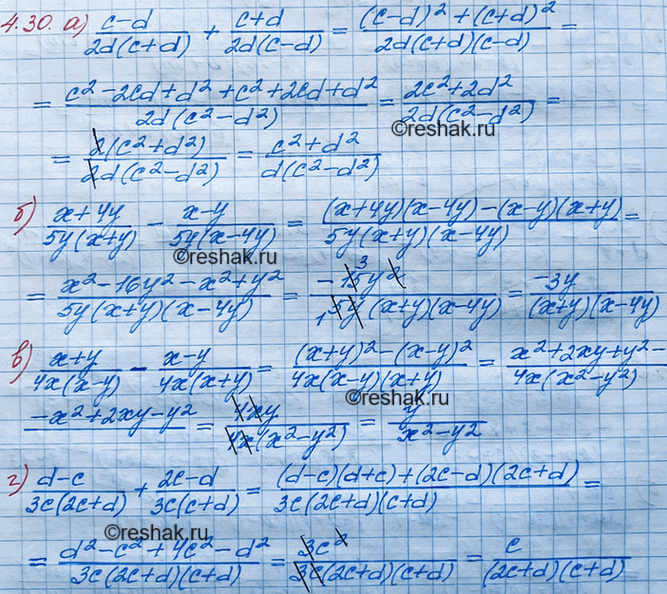 4.30. а) (c-d)/(2d(c+d)) + (c+d)/(2d(c-d)) = ((c-d)²+(c+d)²)/(2d(c+d)(c-d)) =
= (c²-2cd+d²+c²+2cd+d²)/(2d(c²-d²)) = (2c²+2d²)/(2d(c²-d²)) =
©reshak.ru
= (2(c²+d²))/(2d(c²-d²)) = (c²+d²)/(d(c²-d²))
б) (x+4y)/(5y(x+y)) - (x-y)/(5y(x-4y)) = ((x+4y)(x-4y)-(x-y)(x+y))/(5y(x+y)(x-4y)) =
©reshak.ru
= (x²-16y²-x²+y²)/(5y(x+y)(x-4y)) = (-15y²)/(5y(x+y)(x-4y)) = (-3y)/((x+y)(x-4y))
в) (x+y)/(4x(x-y)) - (x-y)/(4x(x+y)) = ((x+y)²-(x-y)²)/(4x(x-y)(x+y)) = (x²+2xy+y²-)/(4x(x²-y²))
©reshak.ru
-x²+2xy-y² = (4xy)/(4x(x²-y²)) = y/(x²-y²)
г) (d-c)/(3c(2c+d)) + (2c-d)/(3c(c+d)) = ((d-c)(d+c)+(2c-d)(2c+d))/(3c(2c+d)(c+d)) =
©reshak.ru
= (d²-c²+4c²-d²)/(3c(2c+d)(c+d)) = (3c²)/(3c(2c+d)(c+d)) = c/((2c+d)(c+d))